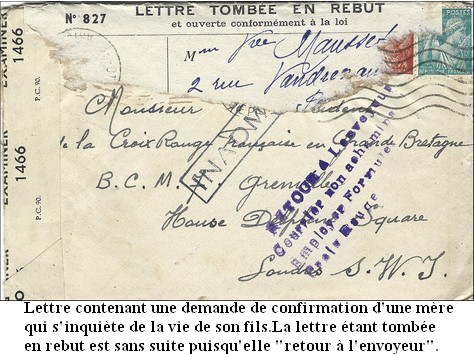 LETTRE TOMBÉE EN REBUT
N° 827
et ouverte conformément à la loi
Mme Vve Mausset
2 rue
Monsieur
de la Croix Rouge Française en Grande Bretagne
B.C.M.
Grenville
House Dolphin Square
Londres S.W.1
INADMIS
RETOUR A L'envoyeur
Courrier non acheminé
Employer Formule
Croix Rouge
EXAMINER 1466
P.C. 90.
EXAMINER 1466
P.C. 90.
1466
Lettre contenant une demande de confirmation d'une mère
qui s'inquiète de la vie de son fils.La lettre étant tombée
en rebut est sans suite puisqu'elle "retour à l'envoyeur".